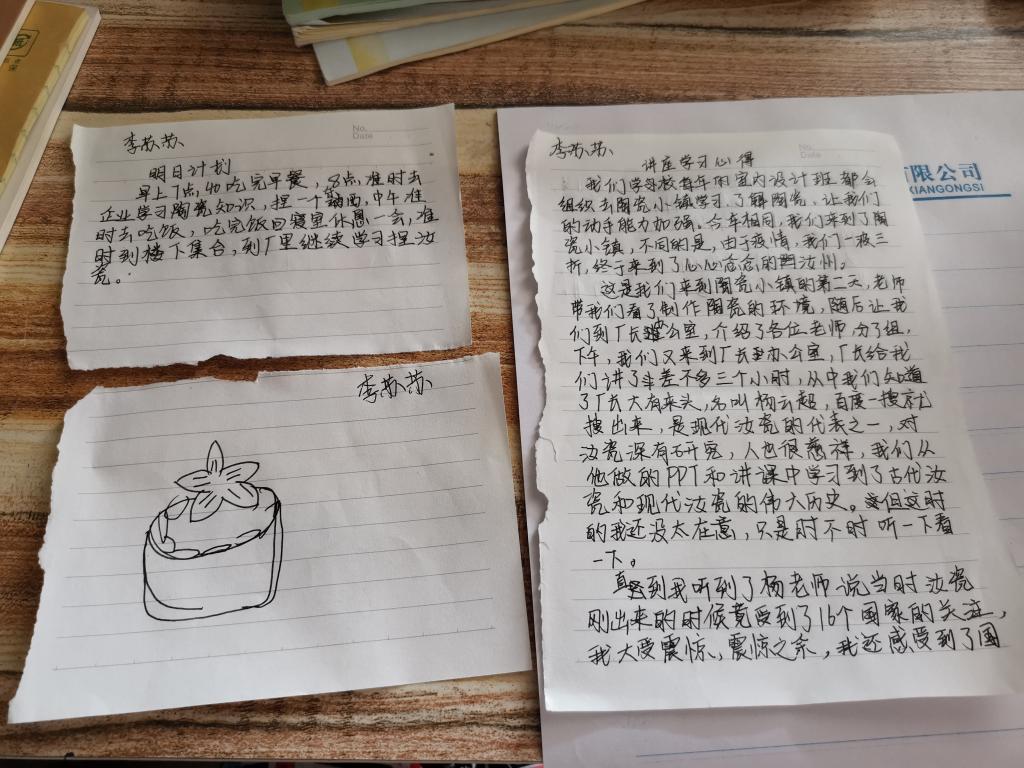 李苏苏
No.
Date
明日计划
早上7点40吃完早餐，8点准时去
企业学习陶瓷知识，捏一个 ，中午准
时去吃饭，吃完饭回寝室休息一会，准
时到楼下集合，到厂里继续学习捏汝
瓷。
李苏苏
李苏苏
No.
Date
讲座学习心得
我们学校每年的室内设计班都会
组织去陶瓷小镇学习，了解陶瓷，让我们
的动手能力加强。今年相同，我们来到了陶
瓷小镇，不同的是，由于疫情，我们一波三
折，终于来到了心心念念的汝州。
这是我们来到陶瓷小镇的第二天，老师
带我们看了制作陶瓷的环境，随后让我
们到厂长办公室，介绍了各位老师，分了组，
下午，我们又来到厂长办公室，厂长给我
们讲了差不多三个小时，从中我们知道
了厂长大有来头，名叫杨云超，百度一搜就
搜出来，是现代汝瓷的代表之一，对
汝瓷深有研究，人也很慈祥，我们从
他做的PPT和讲课中学习到了古代汝
瓷和现代汝瓷的伟大历史。但这时
的我还没太在意，只是时不时听一下看
一下。
直到我听到了杨老师说当时汝瓷
刚出来的时候竟受到了16个国家的关注，
我大受震惊，震惊之余，我还感受到了国
有限公司
XIANGONGSI